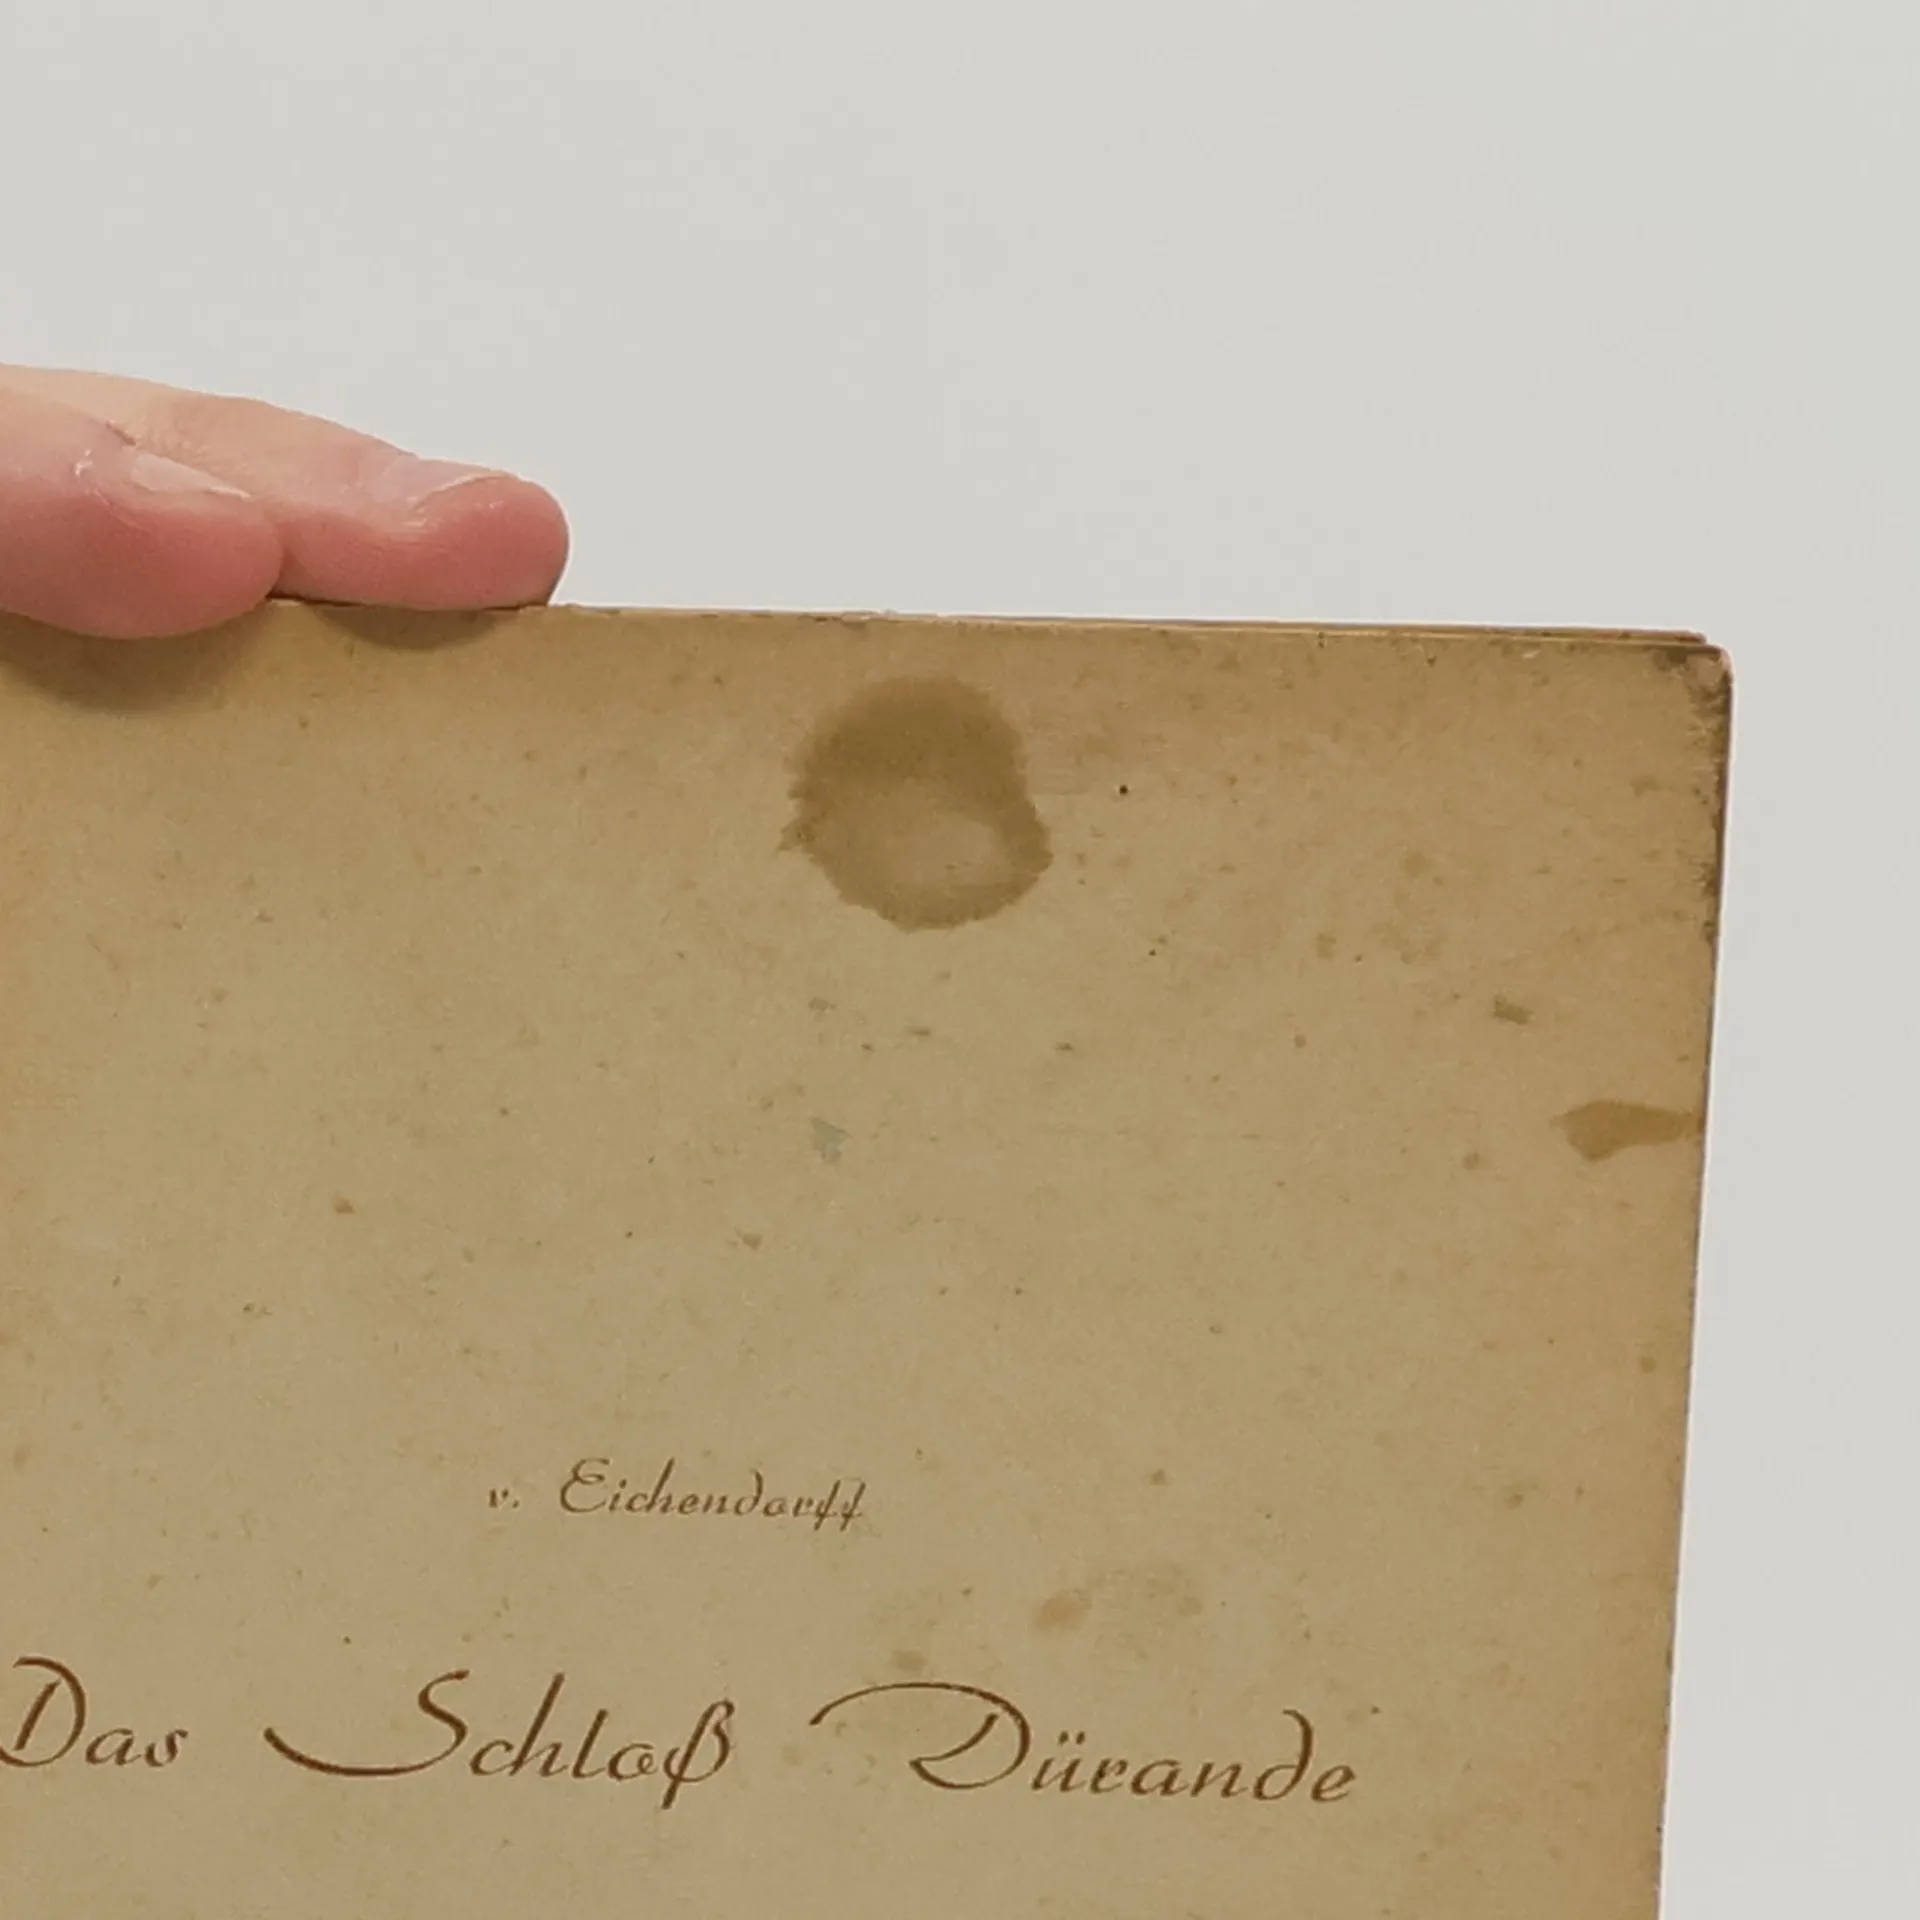 v. Eichendorff
Das Schloß Dürande